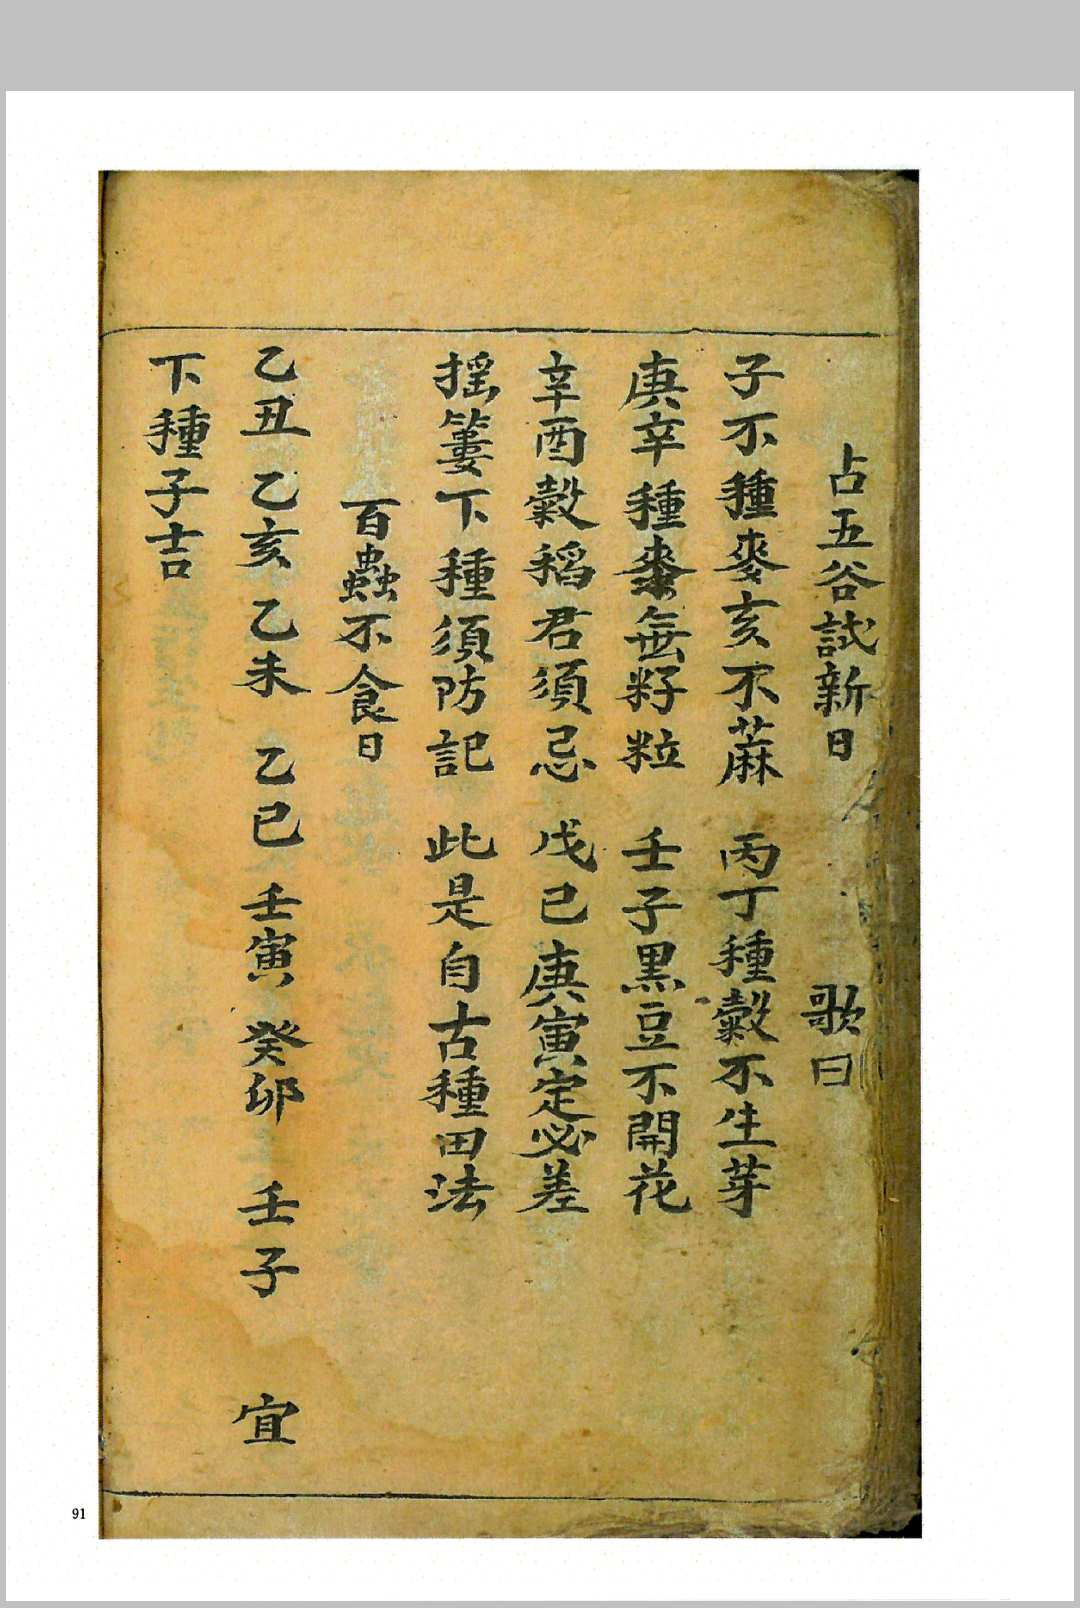 占五谷試新日 歌曰
子不種麥亥不蔴 丙丁種穀不生芽
庚辛種黍無籽粒 壬子黑豆不開花
辛酉穀稻君須忌 戊己庚寅定必差
摇簍下種須防記 此是自古種田法
百蟲不食日
乙丑 乙亥 乙未 乙巳 壬寅 癸卯 壬子 宜
下種子吉
91